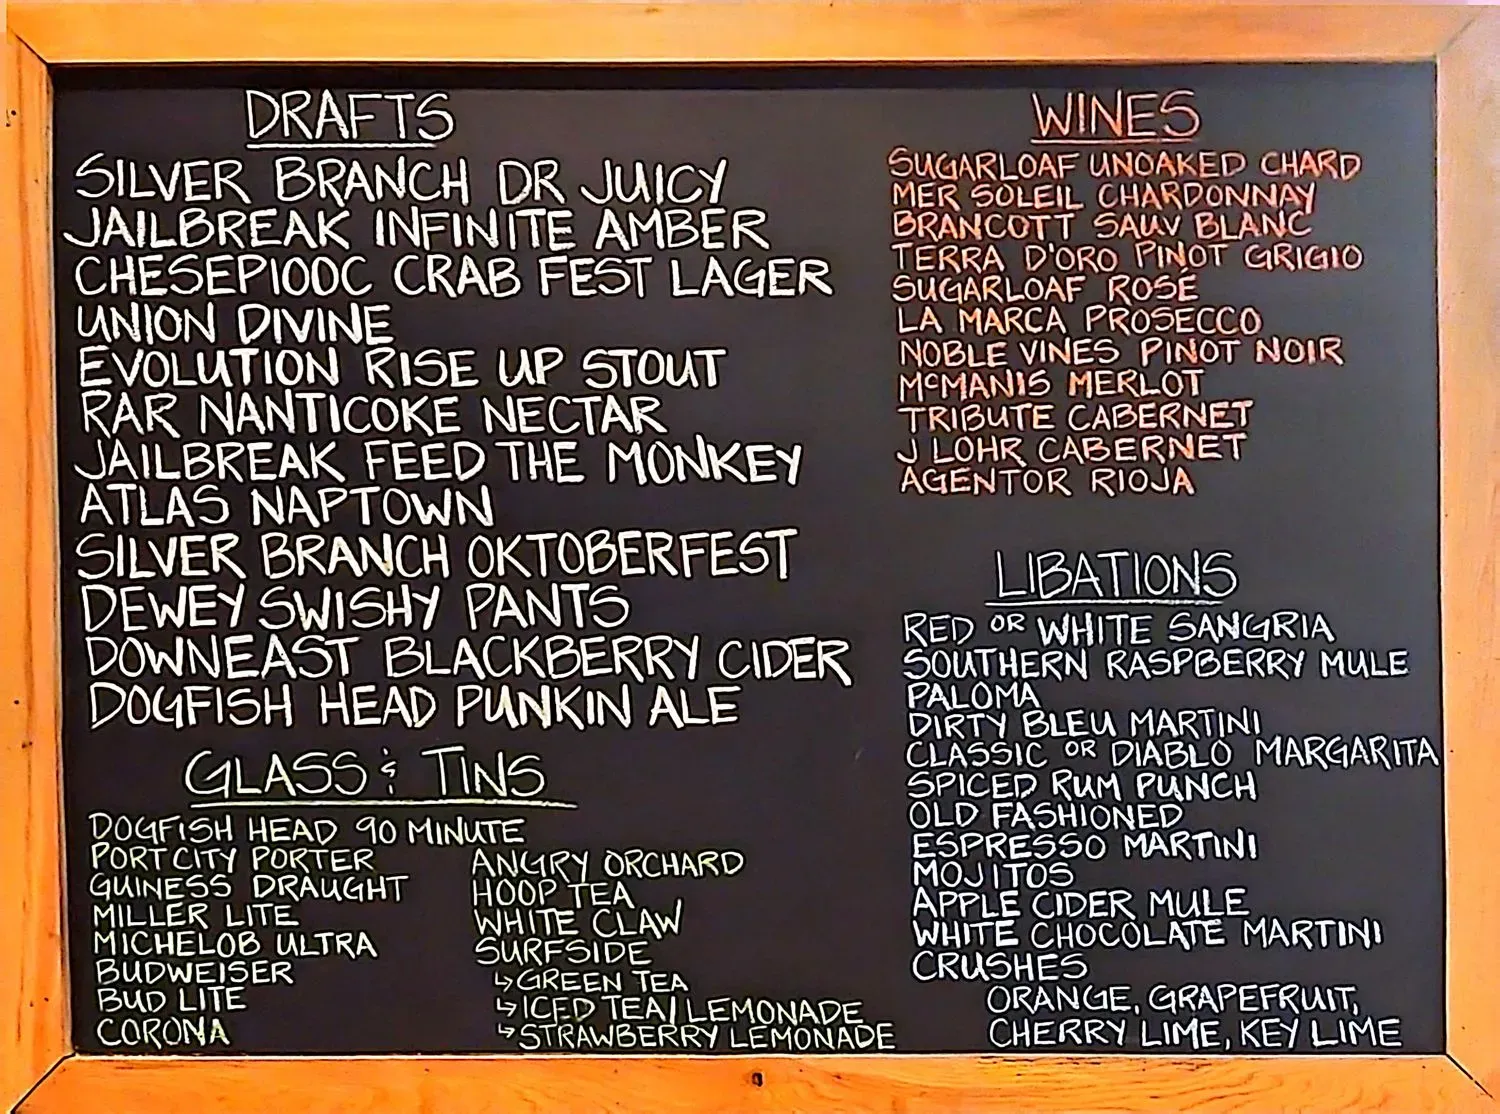 DRAFTS
SILVER BRANCH DR JUICY
JAILBREAK INFINITE AMBER
CHESEPIOOC CRAB FEST LAGER
UNION DIVINE
EVOLUTION RISE UP STOUT
RAR NANTICOKE NECTAR
JAILBREAK FEED THE MONKEY
ATLAS NAPTOWN
SILVER BRANCH OKTOBERFEST
DEWEY SWISHY PANTS
DOWNEAST BLACKBERRY CIDER
DOGFISH HEAD PUNKIN ALE
GLASS & TINS
DOGFISH HEAD 90 MINUTE
PORT CITY PORTER
GUINESS DRAUGHT
MILLER LITE
MICHELOB ULTRA
BUDWEISER
BUD LITE
CORONA
ANGRY ORCHARD
HOOP TEA
WHITE CLAW
SURFSIDE
↳GREEN TEA
↳ICED TEA/LEMONADE
↳STRAWBERRY LEMONADE
WINES
SUGARLOAF UNOAKED CHARD
MER SOLEIL CHARDONNAY
BRANCOTT SAUV BLANC
TERRA D'ORO PINOT GRIGIO
SUGARLOAF ROSÉ
LA MARCA PROSECCO
NOBLE VINES PINOT NOIR
McMANIS MERLOT
TRIBUTE CABERNET
J LOHR CABERNET
AGENTOR RIOJA
LIBATIONS
RED OR WHITE SANGRIA
SOUTHERN RASPBERRY MULE
PALOMA
DIRTY BLEU MARTINI
CLASSIC OR DIABLO MARGARITA
SPICED RUM PUNCH
OLD FASHIONED
ESPRESSO MARTINI
MOJITOS
APPLE CIDER MULE
WHITE CHOCOLATE MARTINI
CRUSHES
ORANGE, GRAPEFRUIT,
CHERRY LIME, KEY LIME